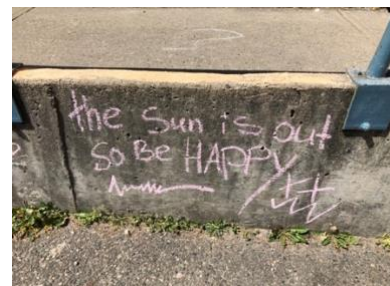 the Sun is out
So Be HAPPY